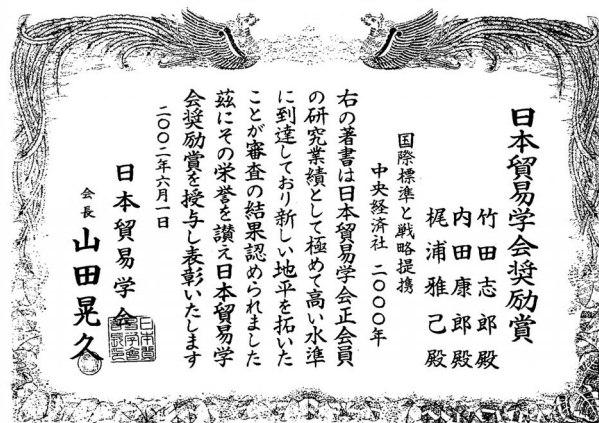 日本貿易学会奨励賞
竹田志郎殿
内田康郎殿
梶浦雅己殿
国際標準と戦略提携
中央経済社 二〇〇〇年
右の著書は日本貿易学会正会員
の研究業績として極めて高い水準
に到達しており新しい地平を拓いた
ことが審査の結果認められました
茲にその栄誉を讃え日本貿易学
会奨励賞を授与し表彰いたします
二〇〇二年六月一日
日本貿易学会
会長 山田晃久